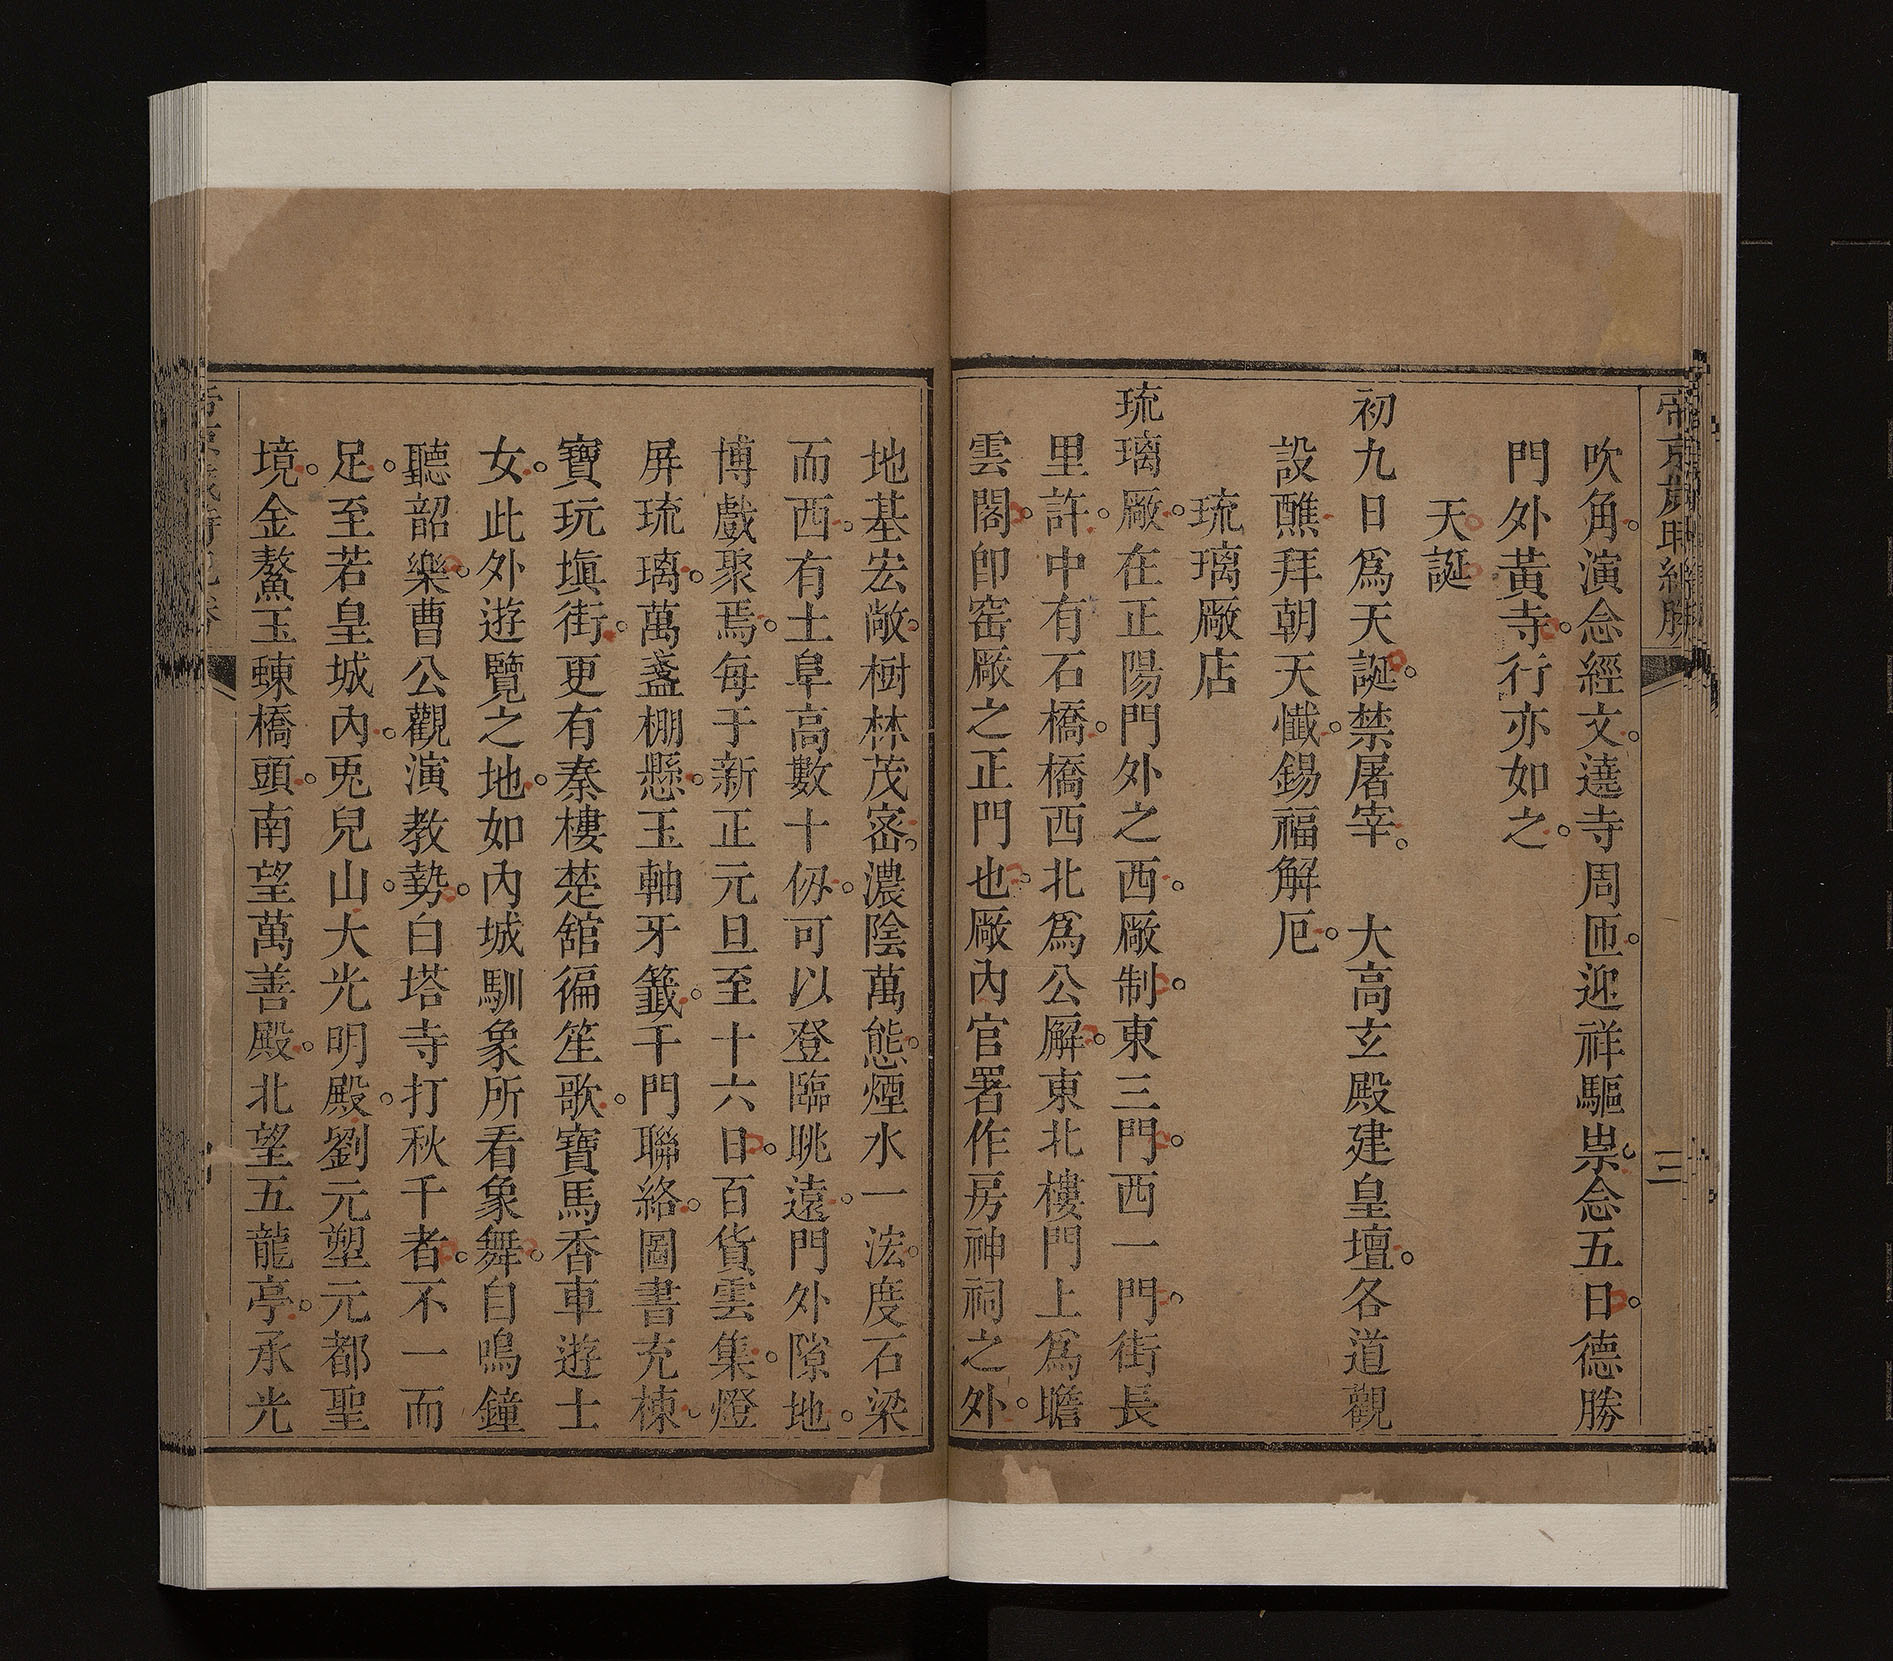 帝京歲時紀勝
三
吹角。演念經文。遶寺周匝。迎祥驅祟。念五日。德勝
門外黃寺。行亦如之。
天誕
初九日爲天誕。禁屠宰。大高玄殿建皇壇。各道觀
設醮拜朝天懺。錫福解厄。
琉璃厰店
琉璃厰。在正陽門外之西。厰制。東三門。西一門。街長
里許。中有石橋。橋西北爲公廨。東北樓門上爲瞻
雲閣。卽窑厰之正門也。厰內官署作房神祠之外。
地基宏敞。樹林茂密。濃陰萬態。煙水一泓。度石梁
而西。有土阜高數十仞。可以登臨眺遠。門外隙地。
博戲聚焉。每于新正元旦至十六日。百貨雲集。燈
屏琉璃。萬盞棚懸。玉軸牙籤。千門聯絡。圖書充棟。
寶玩塡街。更有秦樓楚舘徧笙歌。寶馬香車遊士
女。此外遊覽之地。如內城馴象所看象舞。自鳴鐘
聽韶樂。曹公觀演教勢。白塔寺打秋千者。不一而
足。至若皇城內。兎兒山。大光明殿。劉元塑元都聖
境。金鰲玉蝀橋頭。南望萬善殿。北望五龍亭。承光